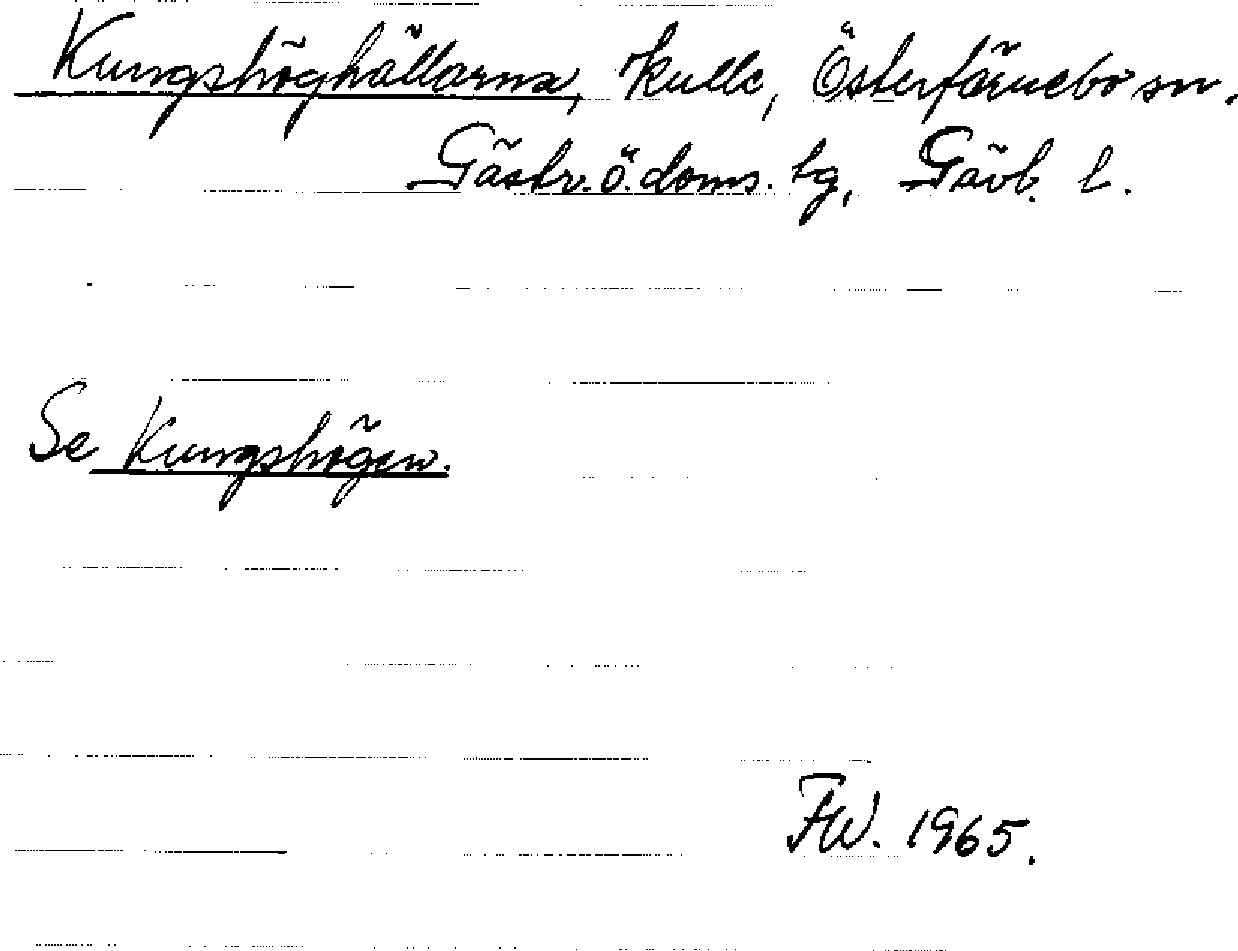 Kungshöghällarna, kulle, Österfärnebo sn.
Gästr. ö. doms. tg, Gävl. l.
Se Kungshögen.
FW. 1965.